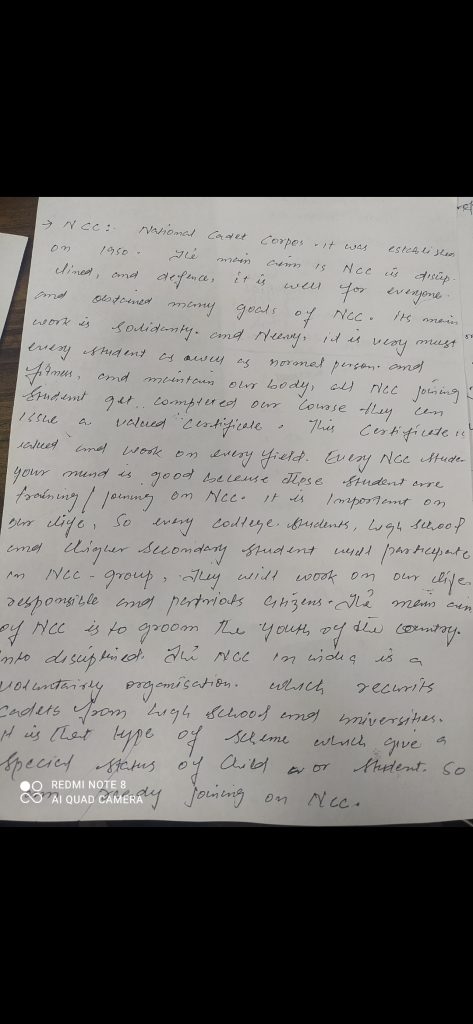 → NCC:- National Cadet Corpos. it was established
on 1950. The main aim is NCC is discip-
lined, and defence, it is well for everyone.
and obtained many goals of NCC. its main
work is Solidarity. and it is very must
every student as well as normal person. and
fitness, and maintain our body, all NCC joining
Student get completed our course they can
issue a valued "certificate. This certificate is
valued and work on every field. Every NCC stude
your mind is good because those student are
training / joining on NCC. it is Important on
our life, So every college students, high school
and higher Secondary student must participate
in NCC - group, They will work on our life
responsible and citizens. The main aim
of NCC is to groom the youth of the country.
into disciplined. The NCC in india is a
voluntairly organisation. which recruits
cadets from high School and universities.
it is that type of scheme which give a
special status of child or student. So
ready joining on NCC.
REDMI NOTE 8
AI QUAD CAMERA